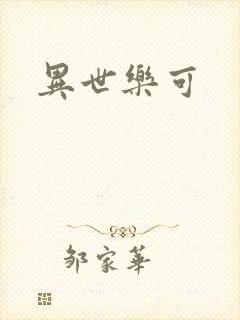 異世樂可
邹家華